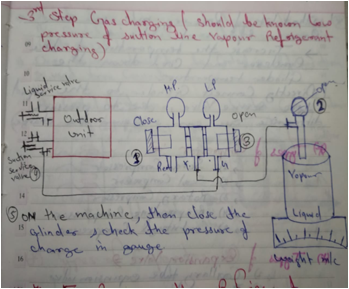 3rd Step Gas charging ( should be known low
pressure of suction line Vapour Refrigerant
charging)
HP
LP
Liquid
Service valve
Close
Outdoor
unit
Open
①
③
②
Suction
Service
valve ④
Vapour
Liquid
⑤ ON the machine, then close the
cylinder & check the pressure of
change in gauge